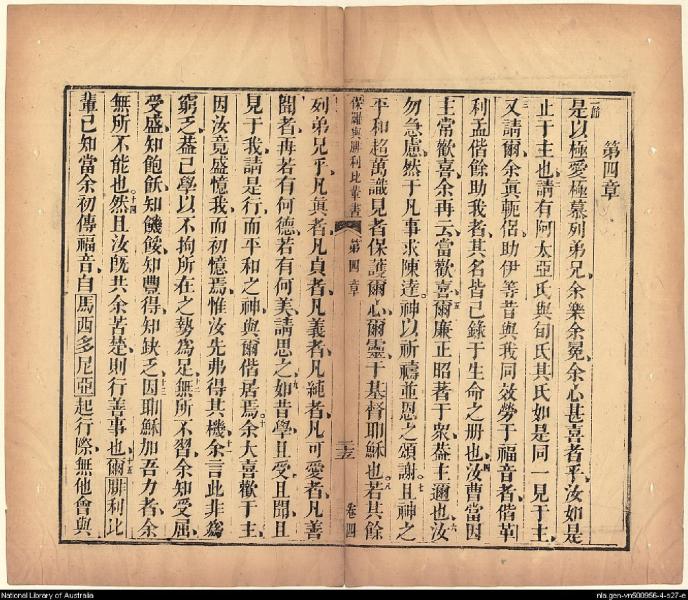 第四章
一節
是以極愛極慕列弟兄余樂余冕余心甚喜者乎汝如是
止于主也請有阿太亞氏與旬氏其氏如是同一見于主
又請爾余真軛侶助伊等昔與我同效勞于福音者偕革
利孟偕餘助我者其名皆已錄于生命之册也汝曹當因
主常歡喜余再云當歡喜爾廉正昭著于衆葢主邇也汝
勿急慮然于凡事求陳達神以祈禱並恩之頌謝且神之
平和超萬識見者保護爾心爾靈于基督耶穌也若其餘
保羅與腓利比輩書 第四章 卷四
列弟兄乎凡真者凡貞者凡義者凡純者凡可愛者凡善
聞者再若有何德若有何美請思之如昔學且受且聞且
見于我請是行而平和之神與爾偕居焉余大喜歡于主
因汝竟盛憶我而初憶焉惟汝先弗得其機余言此非為
窮乏葢已學以不拘所在之勢為足無所不習余知受屈
受盛知飽飫知饑餒知豐得知缺乏因耶穌加吾力者余
無所不能也然且汝既共余苦楚則行善事也爾腓利比
輩已知當余初傳福音自馬西多尼亞起行際無他會與
National Library of Australia
nla.gen-vn500956-4-s27-e